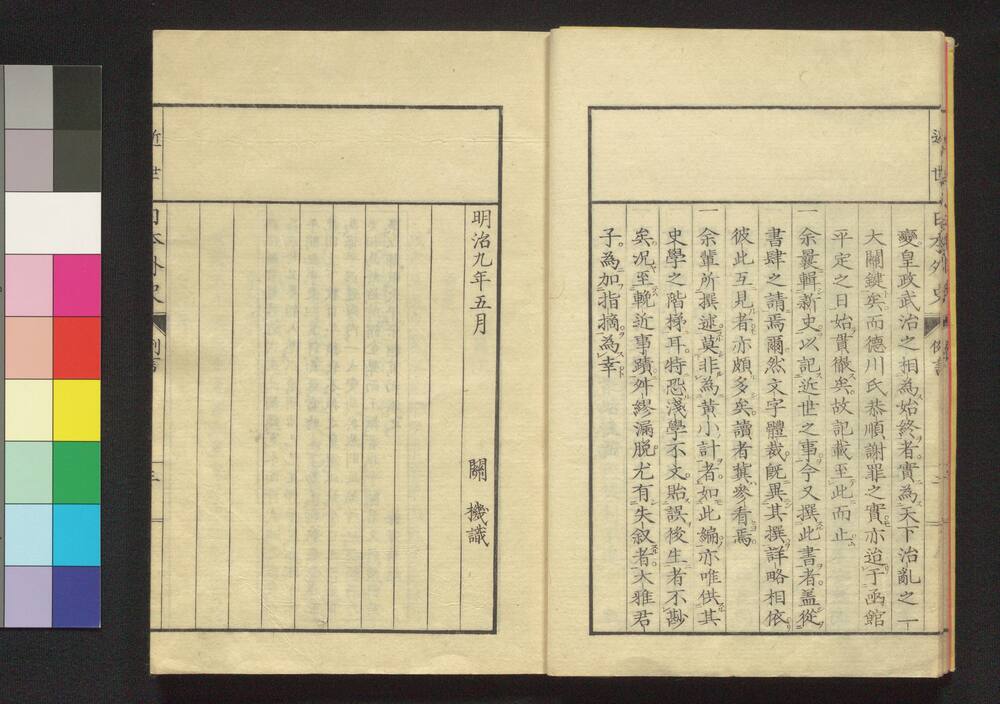 變皇政武治之相為始終者實為天下治亂之一
大關鍵矣而德川氏恭順謝罪之實亦迨于函館
平定之日始貫徹矣故記載至此而止
一余曩輯新史以記近世之事今又撰此書者蓋從
書肆之請焉爾然文字體裁既異其撰詳略相依
彼此互見者亦頗多矣讀者冀參看焉
一余輩所撰述莫非為黃小計者如此編亦唯供其
史學之階梯耳特恐淺學不文貽誤後生者不尠
矣況至輓近事蹟舛繆漏脱尤有失叙者大雅君
子為加指摘為幸
近世日本外史 例言
明治九年五月
關 機識
近世日本外史 例言